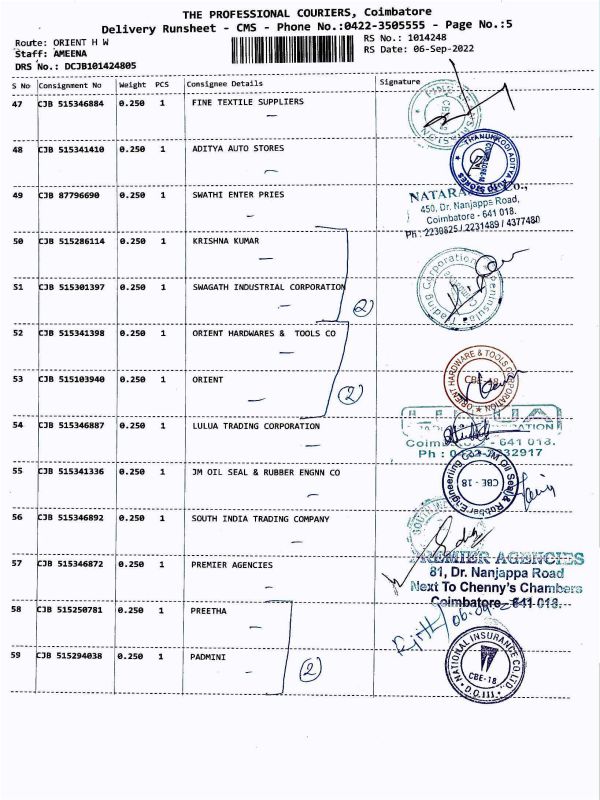 THE PROFESSIONAL COURIERS, Coimbatore
Delivery Runsheet - CMS - Phone No.:0422-3505555 - Page No.:5
Route: ORIENT H W
RS No.: 1014248
Staff: AMEENA
RS Date: 06-Sep-2022
DRS No.: DCJB101424805
S No Consignment No Weight PCS Consignee Details Signature
47 CJB 515346884 0.250 1 FINE TEXTILE SUPPLIERS
48 CJB 515341410 0.250 1 ADITYA AUTO STORES
49 CJB 87796690 0.250 1 SWATHI ENTER PRIES
NATARA Co.,
450, Dr. Nanjappa Road,
Coimbatore - 641 018.
Ph : 2230825 / 2231489 / 4377480
50 CJB 515286114 0.250 1 KRISHNA KUMAR
51 CJB 515301397 0.250 1 SWAGATH INDUSTRIAL CORPORATION
2
Peninsular Trading Corporation
52 CJB 515341398 0.250 1 ORIENT HARDWARES & TOOLS CO
53 CJB 515103940 0.250 1 ORIENT
2
ORIENT HARDWARE & TOOLS CORPORATION
CBE-18
54 CJB 515346887 0.250 1 LULUA TRADING CORPORATION
641 018.
55 CJB 515341336 0.250 1 JM OIL SEAL & RUBBER ENGNN CO
JM Oil Seal & Rubber Engineering Co
CBE - 18
56 CJB 515346892 0.250 1 SOUTH INDIA TRADING COMPANY
57 CJB 515346872 0.250 1 PREMIER AGENCIES
PREMIER AGENCIES
81, Dr. Nanjappa Road
Next To Chenny's Chambers
Coimbatore - 641 018.
58 CJB 515250781 0.250 1 PREETHA
59 CJB 515294038 0.250 1 PADMINI
2
NATIONAL INSURANCE CO LTD
CBE-18
D.O.III.